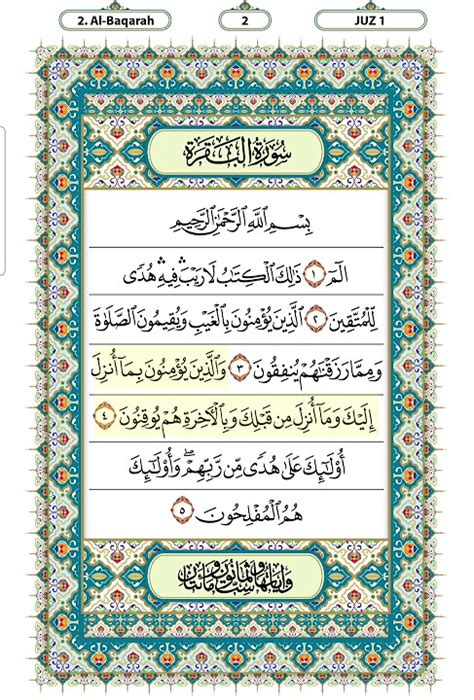 2. Al-Baqarah 2 JUZ 1
سُورَةُ الْبَقَرَةِ
بِسْمِ اللَّهِ الرَّحْمَٰنِ الرَّحِيمِ
الٓمٓ ١ ذَٰلِكَ الْكِتَٰبُ لَا رَيْبَ ۛ فِيهِ ۛ هُدًى
لِّلْمُتَّقِينَ ٢ الَّذِينَ يُؤْمِنُونَ بِالْغَيْبِ وَيُقِيمُونَ الصَّلَوٰةَ
وَمِمَّا رَزَقْنَٰهُمْ يُنفِقُونَ ٣ وَالَّذِينَ يُؤْمِنُونَ بِمَآ أُنزِلَ
إِلَيْكَ وَمَآ أُنزِلَ مِن قَبْلِكَ وَبِالْءَاخِرَةِ هُمْ يُوقِنُونَ ٤
أُو۟لَٰٓئِكَ عَلَىٰ هُدًى مِّن رَّبِّهِمْ ۖ وَأُو۟لَٰٓئِكَ
هُمُ الْمُفْلِحُونَ ٥
وآياتها ست وثمانون ومائتان